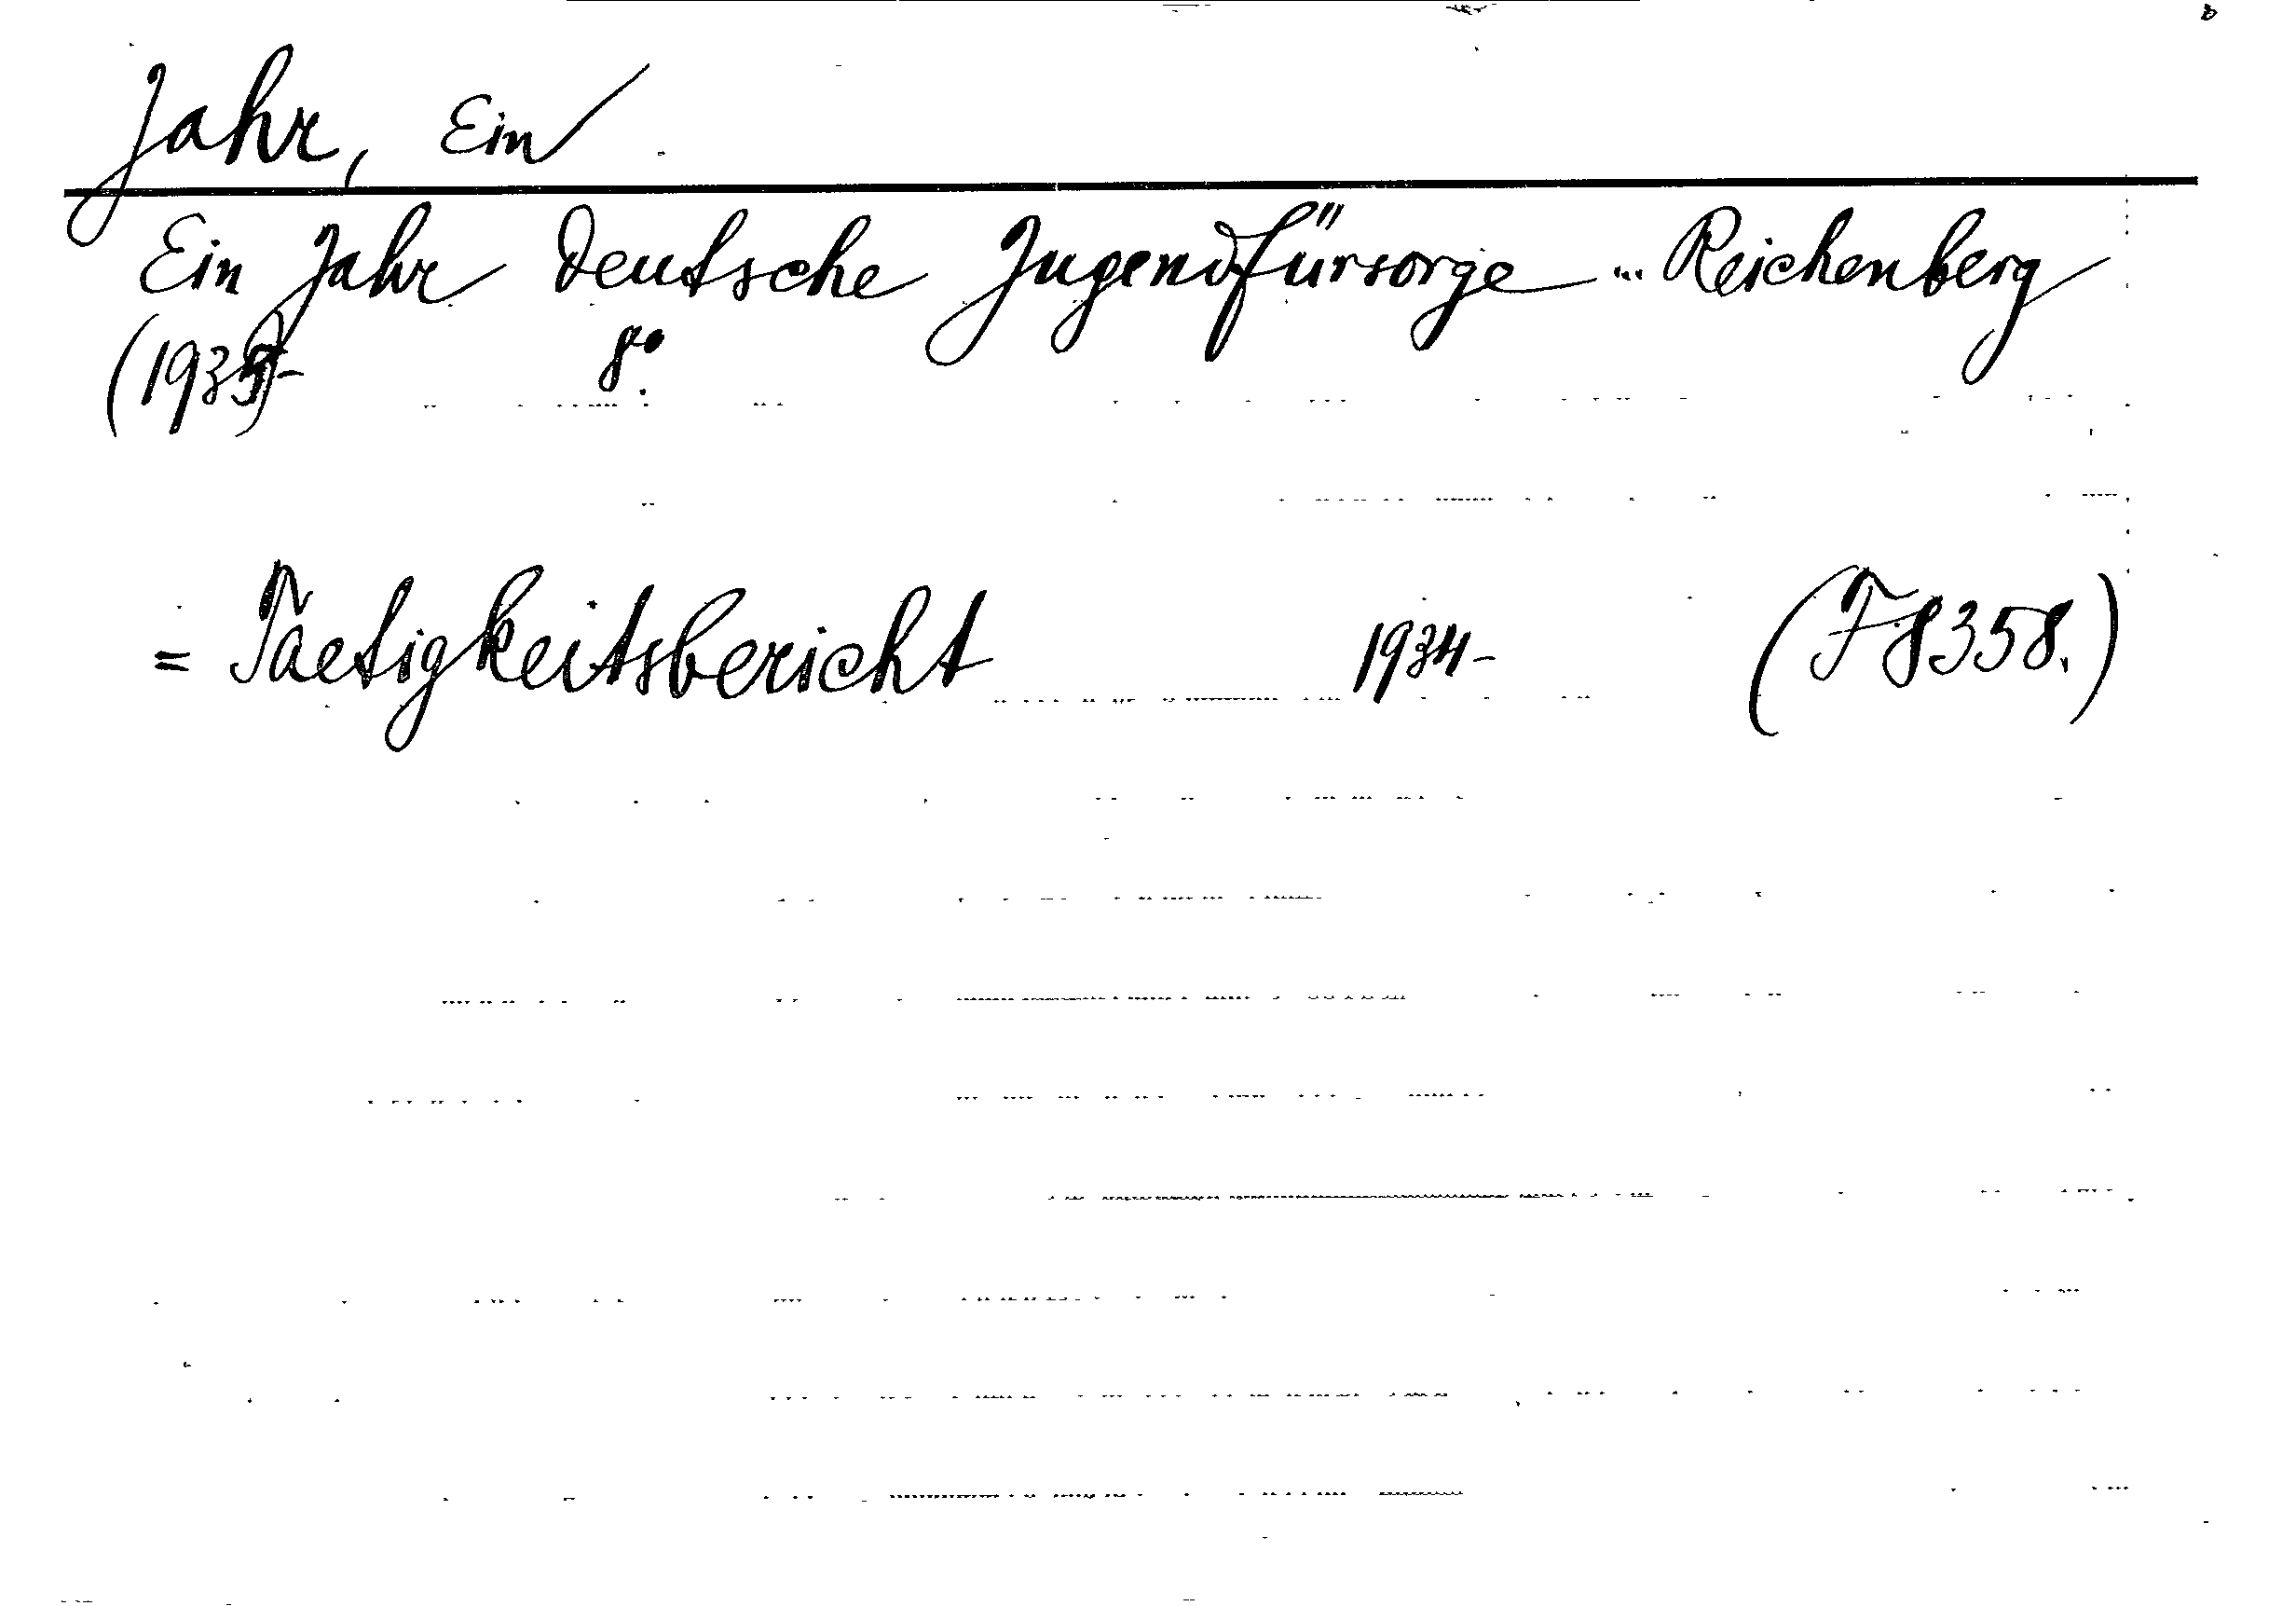 Jahr, Ein
Ein Jahr Deutsche Jugendfürsorge ... Reichenberg
(1935) 8°.
= Taetigkeitsbericht 1934- (F 8358.)